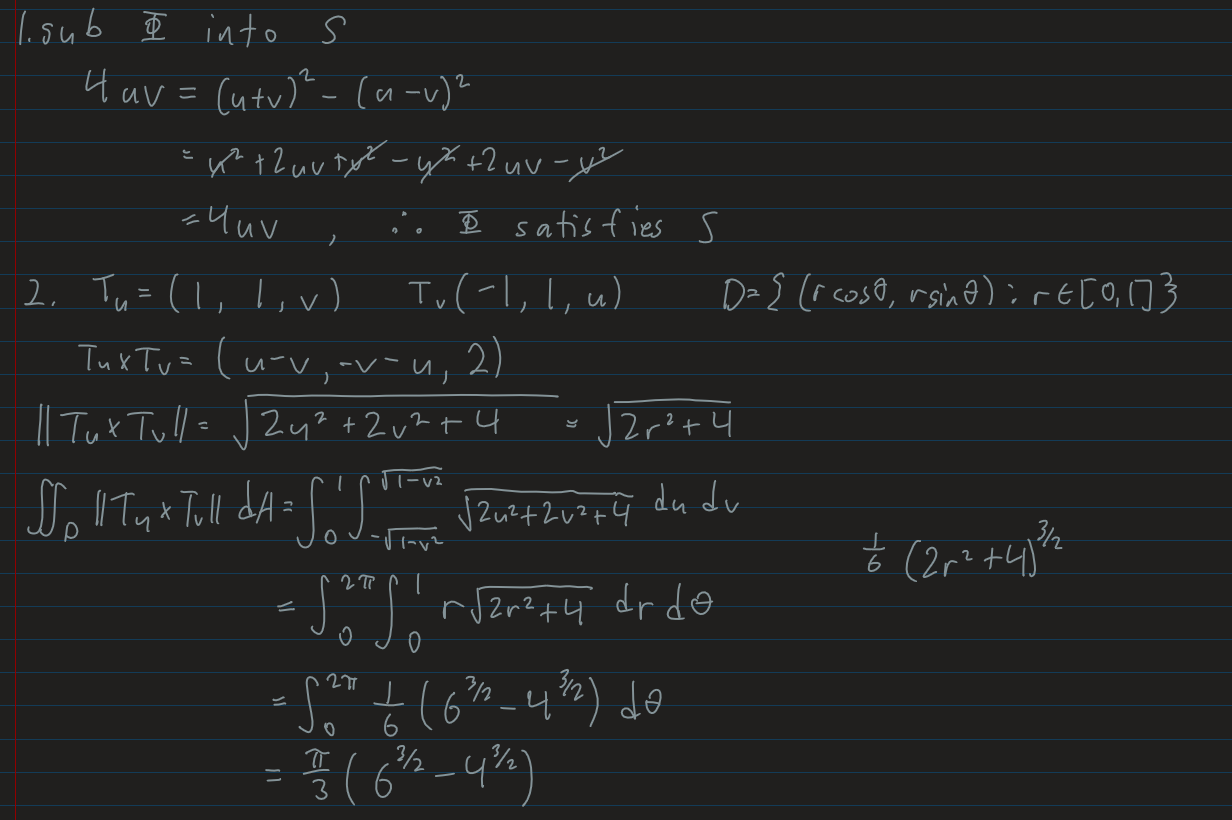 1. sub Φ into S
4uv = (u+v)² - (u-v)²
= u² + 2uv + v² - u² + 2uv - v²
= 4uv , ∴ Φ satisfies S
2. Tᵤ = (1, 1, v) Tᵥ(-1, 1, u) D = {(r cosθ, r sinθ) : r ∈ [0,1]}
Tᵤ × Tᵥ = (u-v, -v-u, 2)
||Tᵤ × Tᵥ|| = √(2u² + 2v² + 4) = √(2r² + 4)
∬_D ||Tᵤ × Tᵥ|| dA = ∫₀¹ ∫_{-√(1-v²)}^{√(1-v²)} √(2u²+2v²+4) du dv
1/6 (2r² + 4)^{3/2}
= ∫₀^{2π} ∫₀¹ r√(2r²+4) dr dθ
= ∫₀^{2π} 1/6 (6^{3/2} - 4^{3/2}) dθ
= π/3 (6^{3/2} - 4^{3/2})